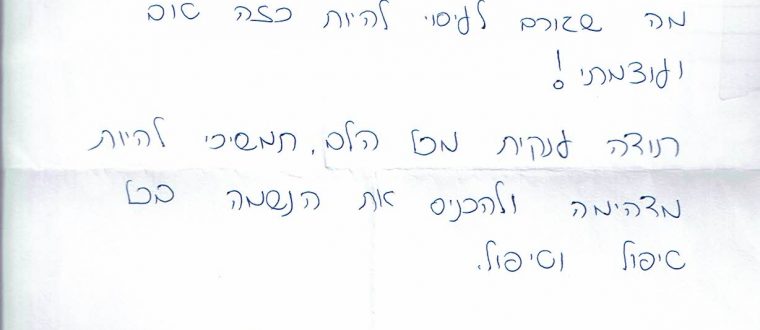 מה שגורם לעיסוי להיות כזה טוב
ועוצמתי!
תודה ענקית מכל הלב, תמשיכי להיות
מדהימה ולהכניס את הנשמה בכל
טיפול וטיפול.